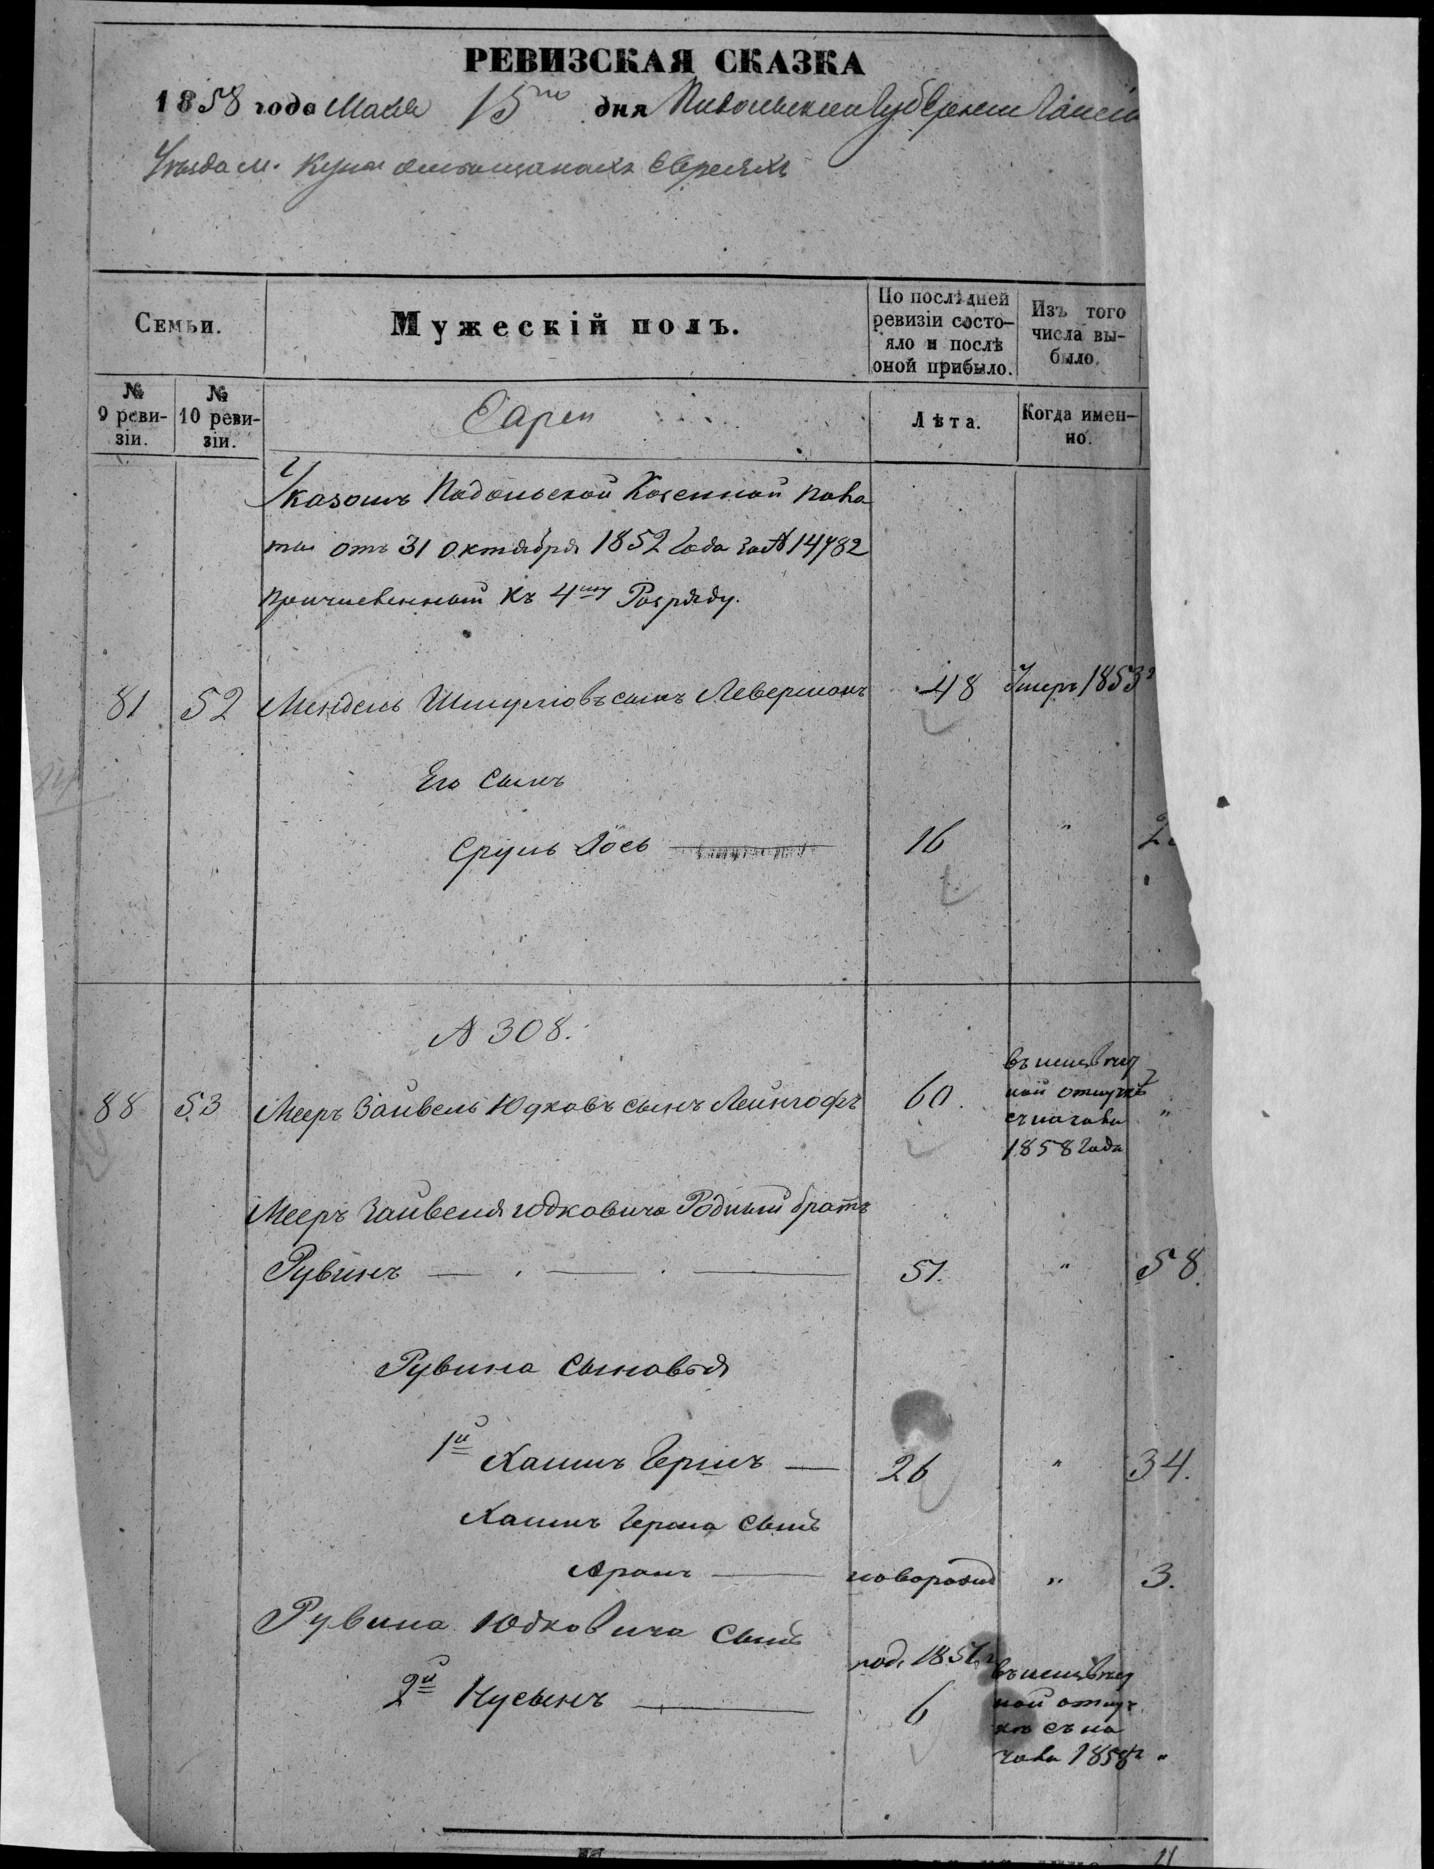 РЕВИЗСКАЯ СКАЗКА
1858 года Маія 15го дня Подольской Губерніи
Уѣзда м. Куны о мѣщанахъ Евреяхъ
Семьи.
Мужескій полъ.
По послѣдней ревизіи состо-
яло и послѣ
оной прибыло.
Изъ того
числа вы-
было.
№
9 реви-
зіи.
№
10 реви-
зіи.
Евреи
Лѣта.
Когда имен-
но.
Указомъ Подольской Казенной Пала
ты отъ 31 октября 1852 Года за № 14782
причисленный къ 4му Розряду.
81 52 Мендель Шмулювъ сынъ Леверманъ 48 Умеръ 1853
Его сынъ
Сруль Лось 16 "
№ 308.
88 53 Мееръ Зайвель Юдковъ сынъ Лейнгофъ 60 "
ной отлучкѣ
съ начала
1858 Года
Мееръ Зайвеля Юдковича Родный братъ
Рувинъ 51. " 58.
Рувина сыновья
1й Хаимъ Гершъ 26 " 34.
Хаимъ Герша сынъ
Аронъ новорожд " 3.
Рувина Юдковича сынъ
род. 1851г
2й Нусынъ 6
ной отлуч
кѣ съ на
чала 1858г "